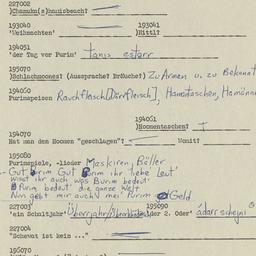 227002
)Chamukn(s)hauisbeach?
193040 193041
'Weihnachten' )Hittl?
194051
'der Tag vor Purim' tanis ester
195070
)Schlachmones? (Aussprache? Bräuche?) Zu Armen u. zu Bekannt
194060
Purimspeisen Rauchfleisch [Dörrfleisch], Hamentaschen, Hamänn
194061
)Homentaschen?
194070
Hat man den Homen "geschlagen"? Womit?
195080
Purimspiele, -lieder Maskiren, Bäller
Gut Purim Gut Purim ihr liebe Leut'
Wisst ihr auch was Burim bedeut'
Purim bedeut' die ganze Welt
Nun gebt mir auch mei Purim Geld
227003 195090
'ein Schaltjahr' Überjahr der 2. Oder' adar scheini
227004
"Schawat ist kein ..."
195070